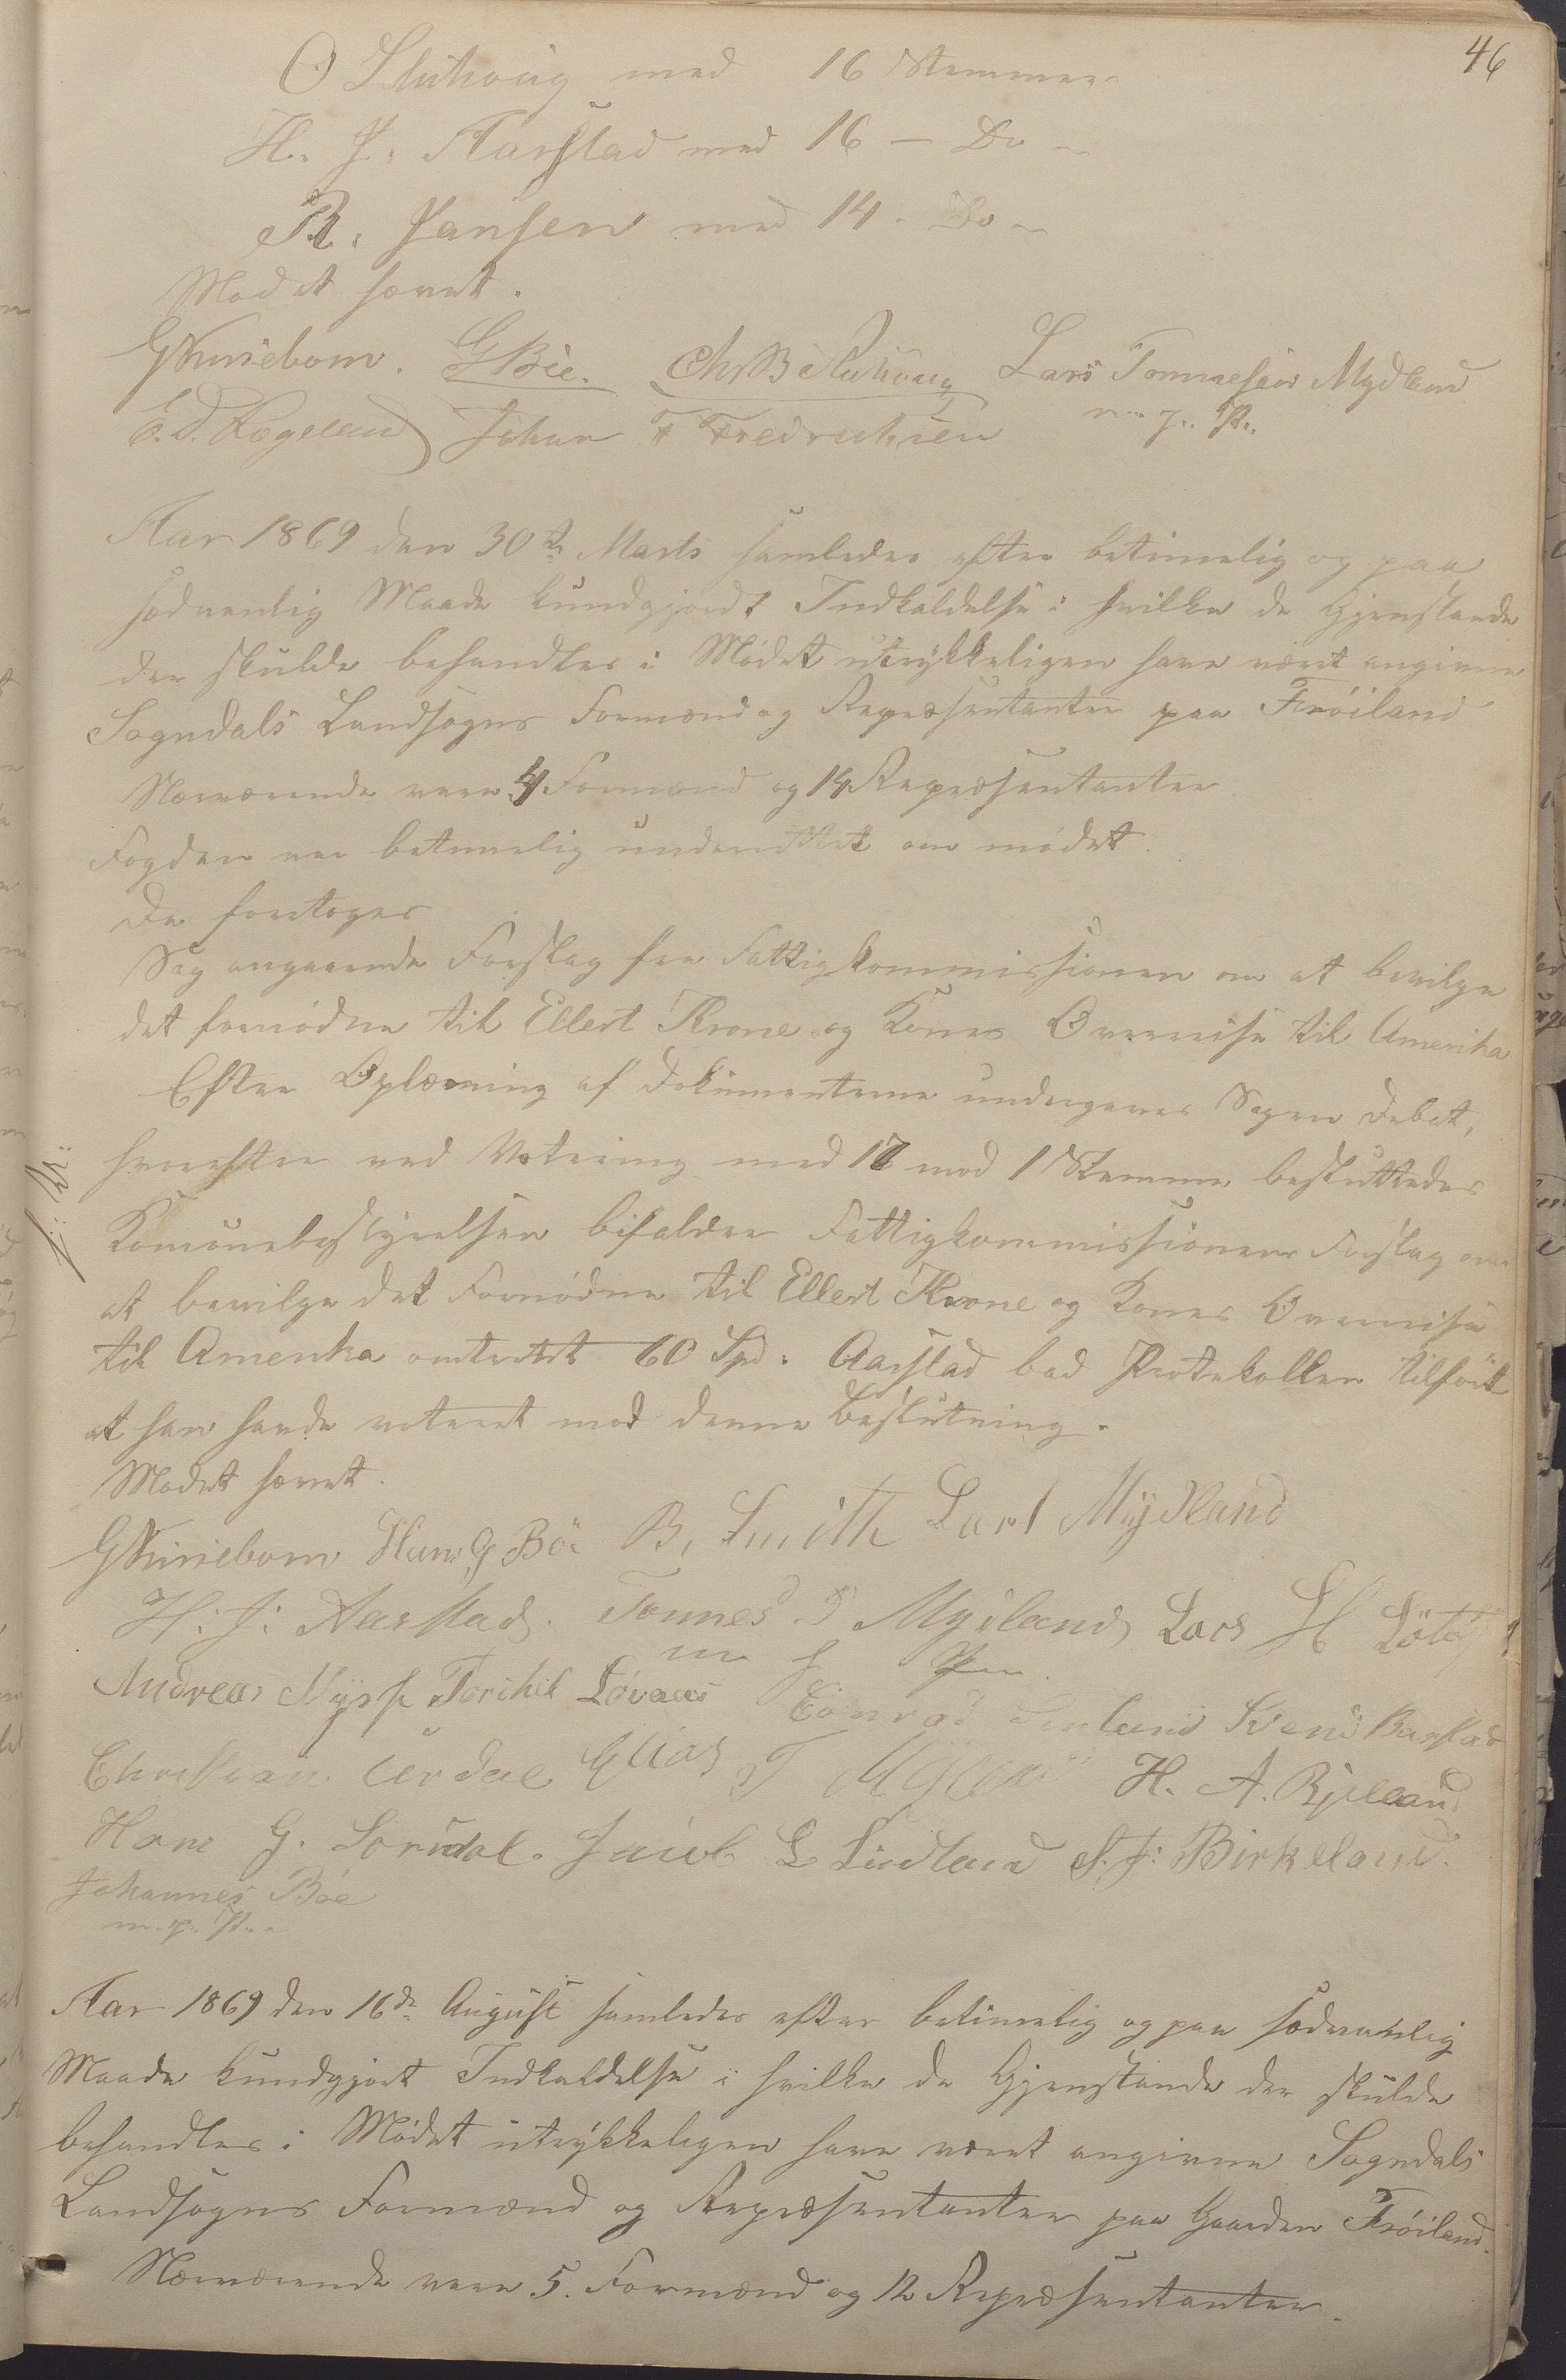 46
O Stuhoug med 16 Stemmer
H. J. Aarstad med 16 — Do —
R. Jansen med 14 - Do —
Mødet hævet.
GKuniebom. GBøe. Chr B Stuhoug Lars Tonnesen Mydland
E. D. Rægeland Johan F Fredrichsen m. p. P..
Aar 1869 den 30te Marts samledes efter betimelig og paa
sædvanlig Maade kundgjordt Indkaldelse i hvilken de Gjenstande
der skulde behandles i Mødet utrykkeligen have været angivne
Sogndals Landsogns Formænd og Repræsentanter paa Frøiland
Nærværende vare 4 Formænd og 14 Repræsentanter
Fogden var betimelig underrettet om mødet.
Da foretoges
Sag angaaende Forslag fra Fattigkommissionen om at bevilge
det fornødne til Ellert Krone og Kones Overreise til Amerika
Efter Oplæsning af Dokumenterne undergaves Sagen Debat,
hvorefter ved Votering med 17 mod 1 Stemme besluttedes
Komunebestyrelsen bifalder Fattigkommissionens Forslag om
at bevilge det Fornødne til Ellert Krone og Kones Overreise
til Amerika omtrent 60 Spd. Aarstad bad Protokollen tilført
at han havde voteret mod denne Beslutning.
Mødet hævet.
GKuniebom Hans G Bøe B, Smith Lars Mydland
H. J. Aarstad. Tonnes Mydland Lars H Løtoft
m p P.
Andreas Mysse Torkel Løvaas Conrad Svend Barstad
Christian Urdal Elias T H. A. Rjeland
Hans G. Sorudal. Jacob L Lindland S. J. Birkeland.
Johannes Bøe
m. p. P..
Aar 1869 den 16de August samledes efter betimelig og paa sædvanlig
Maade kundgjort Indkaldelse i hvilken de Gjenstande der skulde
behandles i Mødet utrykkeligen have været angivne Sogndals
Landsogns Formænd og Repræsentanter paa Gaarden Frøiland.
Nærværende vare 5. Formænd og 12 Repræsentanter.